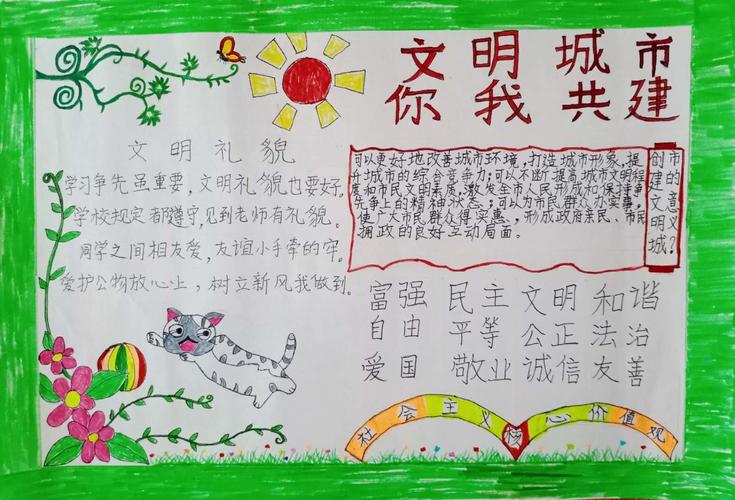 文明城市
你我共建
文明礼貌
学习争先虽重要,文明礼貌也要好,
学校规定都遵守,见到老师有礼貌。
同学之间相友爱,友谊小手牵的牢。
爱护公物放心上,树立新风我做到。
创建文明城市的意义?
可以更好地改善城市环境,打造城市形象,提
升城市的综合竞争力;可以不断提高城市文明程
度和市民文明素质,激发全市人民形成和保持争
先争上的精神状态;可以为市民群众办实事,
使广大市民群众得实惠,形成政府亲民、市民
拥政的良好互动局面。
富强 民主 文明 和谐
自由 平等 公正 法治
爱国 敬业 诚信 友善
社会主义核心价值观